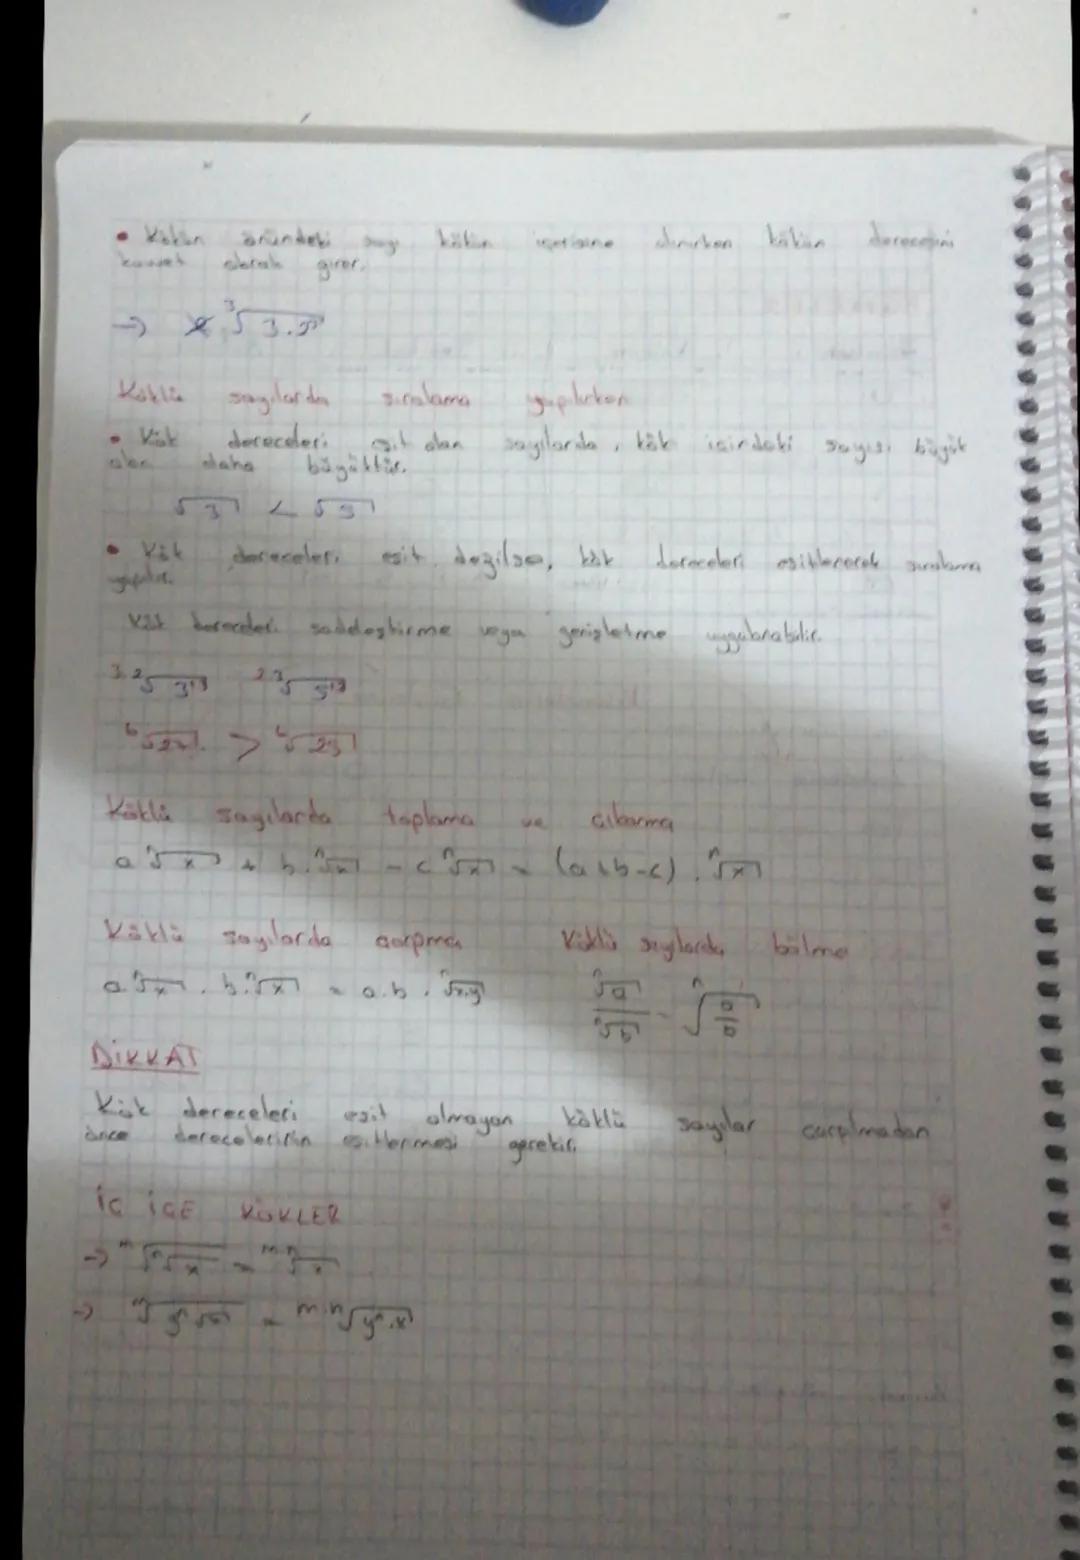 • Kökün önündeki sayı kökün içerisine alınırken kökün derecesini
kuvvet olarak girer.
→ 2 ³√3.2³
Köklü sayılarda sıralama yapılırken
• Kök dereceleri eşit olan sayılarda, kök içindeki sayısı büyük
olan daha büyüktür.
√3 < √5
• Kök dereceleri eşit değilse, kök dereceleri eşitlenerek sıralama
yapılır.
Kök dereceleri sadeleştirme veya genişletme uygulanabilir.
3.2√3^1.3 2.3√5^1.2
⁶√27 > ⁶√25
Köklü sayılarda toplama ve çıkarma
a ⁿ√x + b.ⁿ√x - c ⁿ√x = (a+b-c).ⁿ√x
Köklü sayılarda çarpma Köklü sayılarda bölme
a ⁿ√x . b.ⁿ√x = a.b.ⁿ√x.y ⁿ√a / ⁿ√b = ⁿ√(a/b)
DİKKAT
Kök dereceleri eşit olmayan köklü sayılar çarpılmadan
önce derecelerinin eşitlenmesi gerekir.
İÇ İÇE KÖKLER
→ ᵐ√ⁿ√x = ᵐ·ⁿ√x
→ ᵐ√yⁿ√x = ᵐ·ⁿ√yⁿ.x